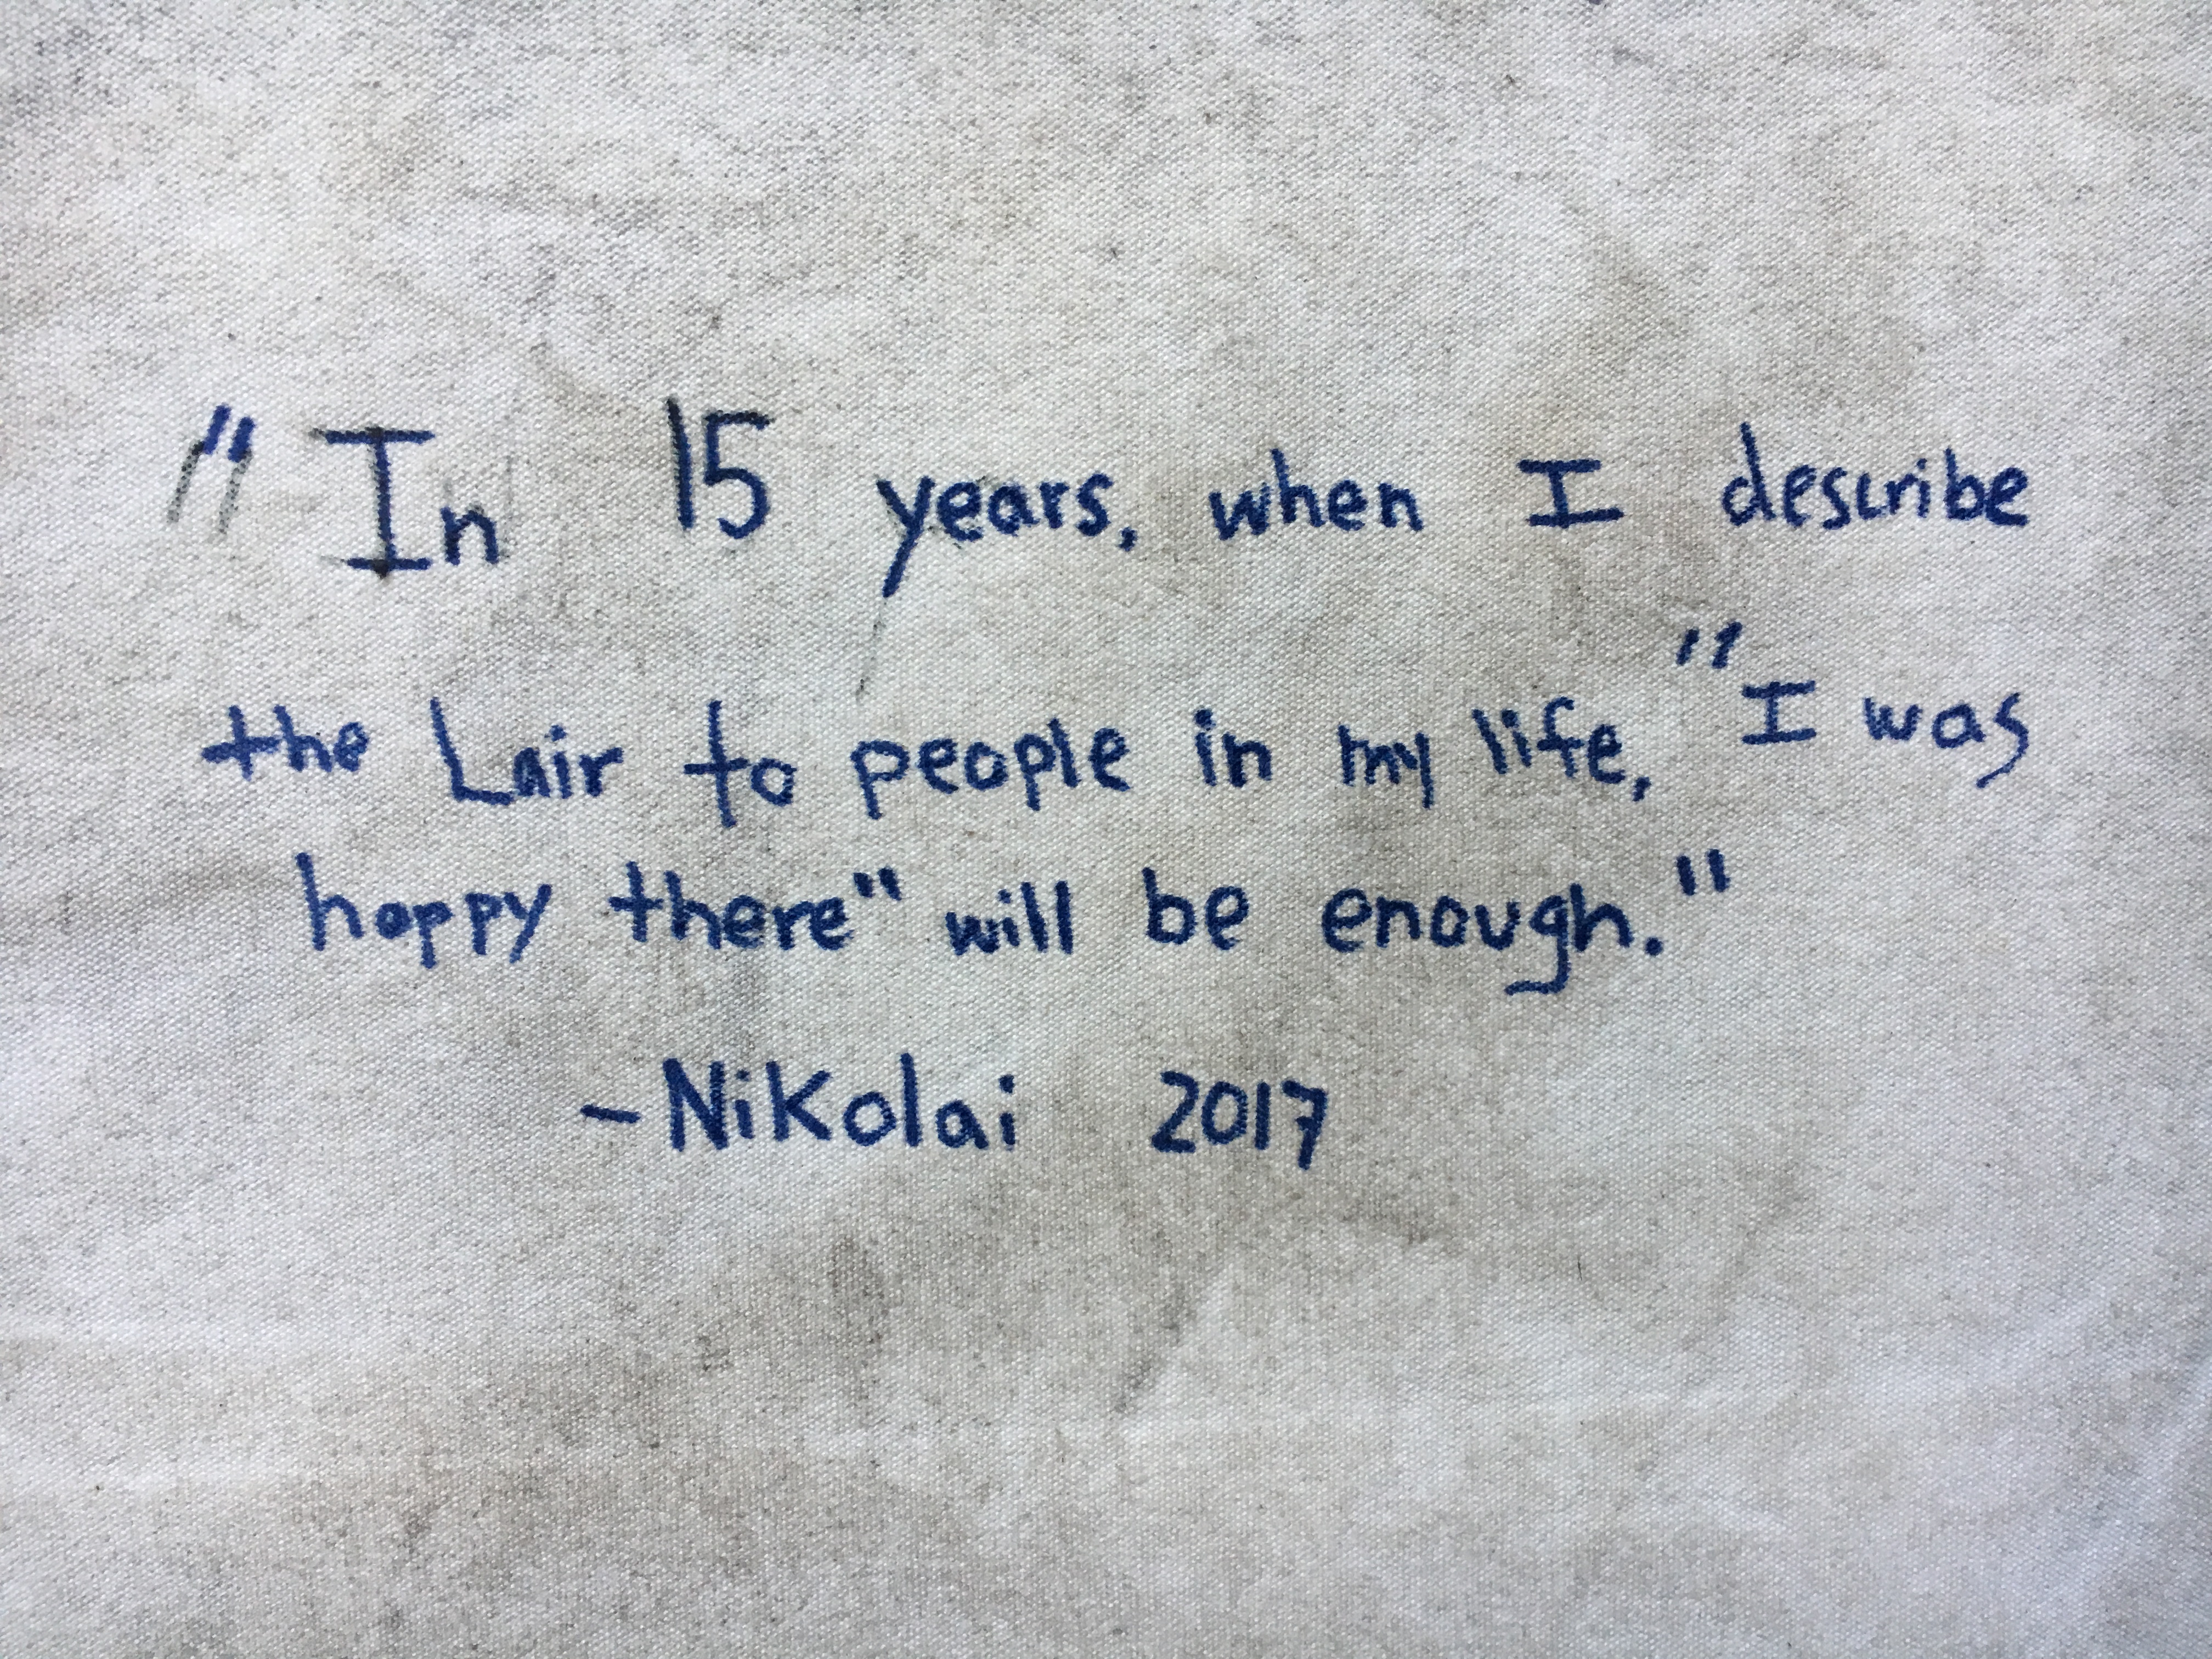 "In 15 years, when I describe
the Lair to people in my life, "I was
happy there" will be enough."
-Nikolai 2017